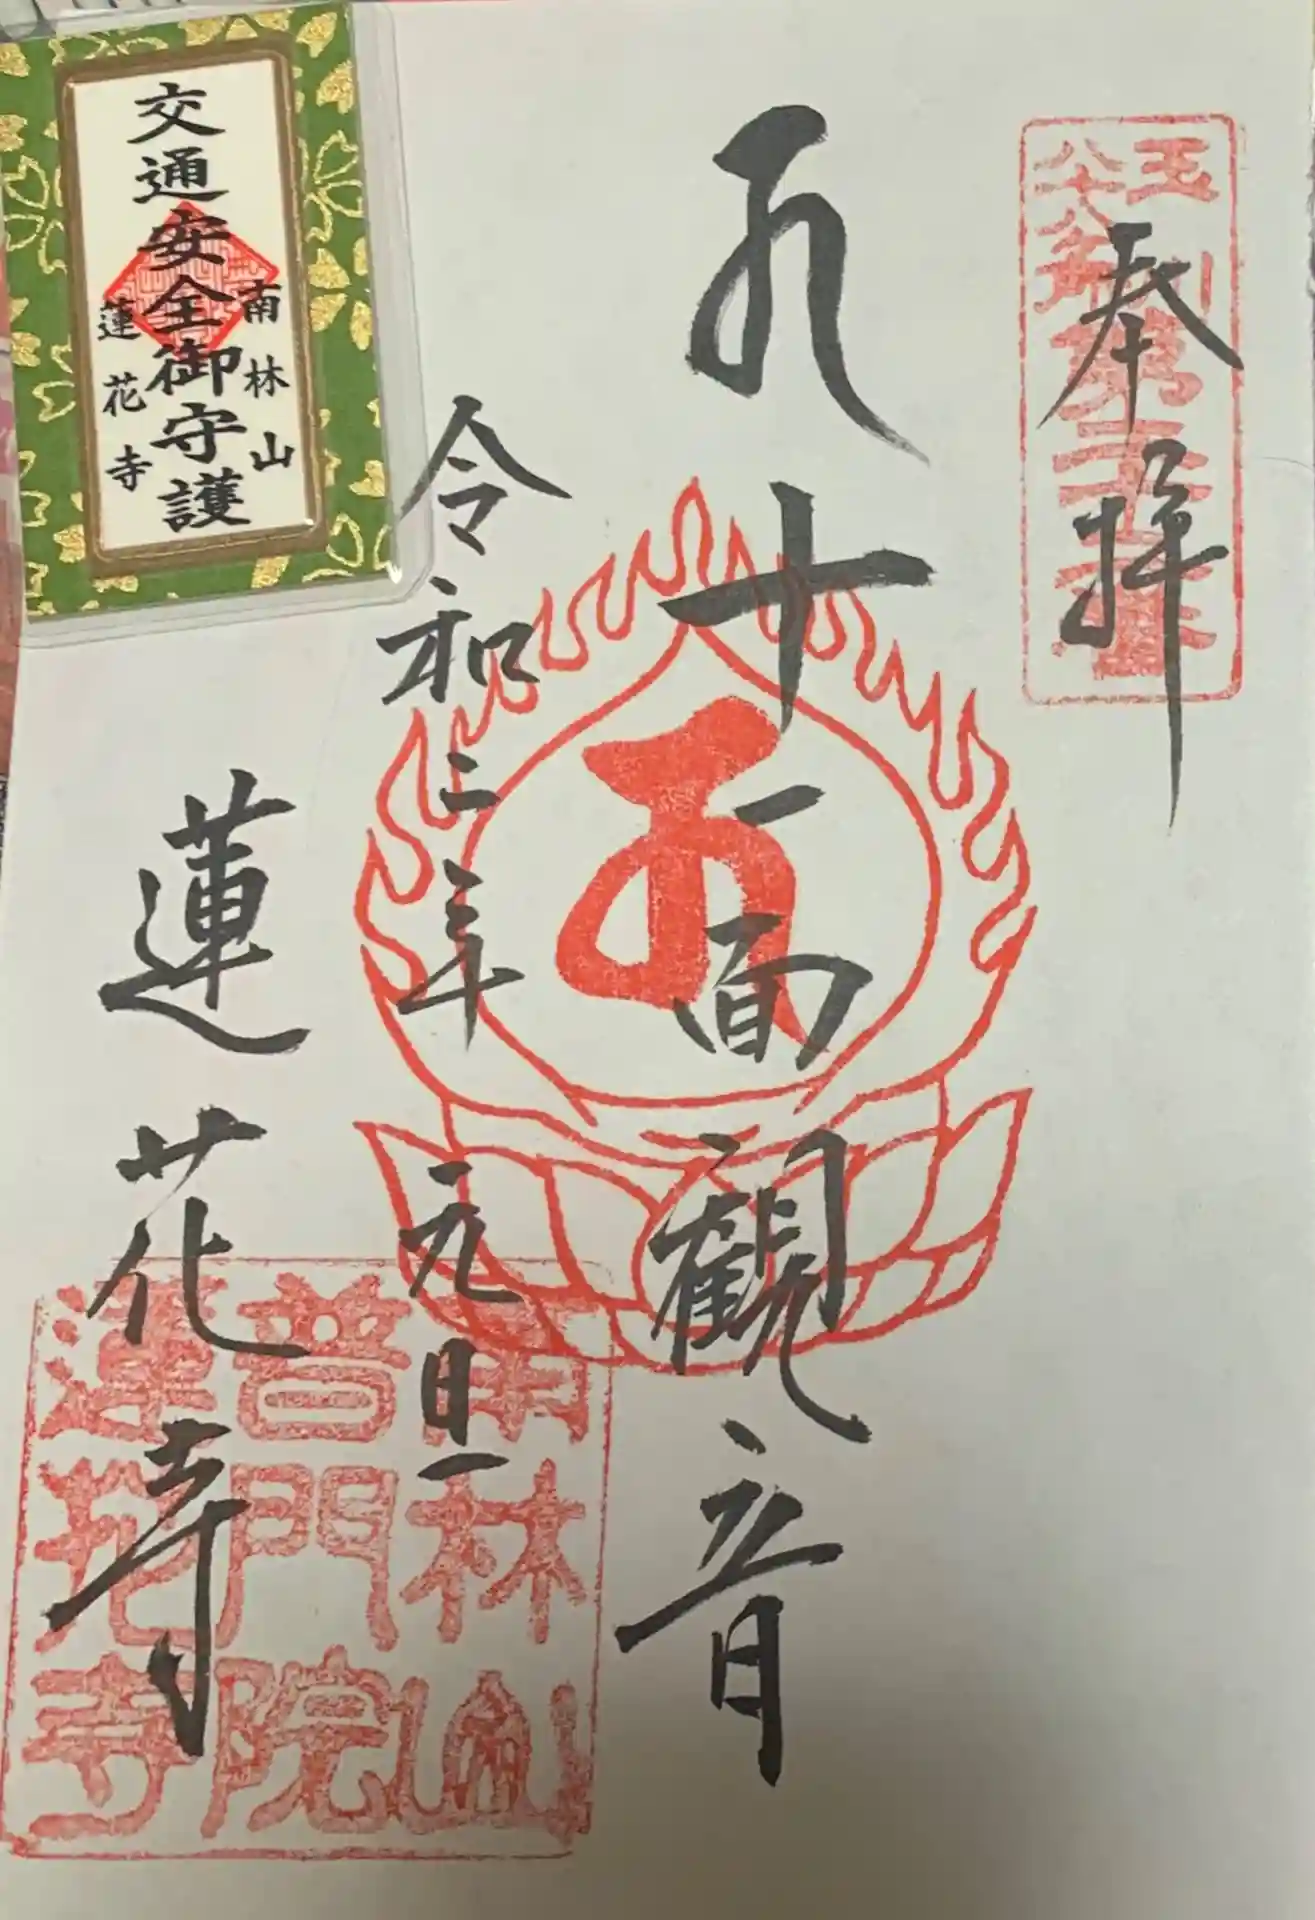 交通安全御守護
南林山
蓮花寺
奉拝
玉川
八十八ヶ所
十一面觀音
令和二年元旦
蓮花寺
南林山
普門院
蓮花寺